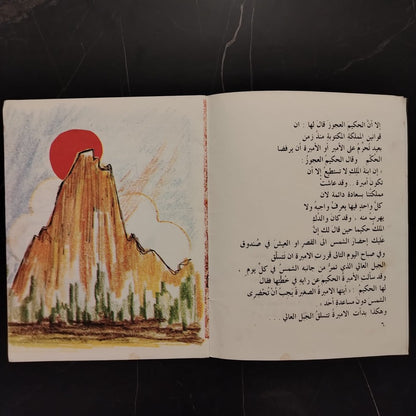 إلا أنَّ الحكيمَ العجوزَ قالَ لها : ان
قوانين المملكة المكتوبة منذُ زمن
بعيد تُحرمُ على الأمير أو الأميرة أن يرفضا
الحكم . وقال الحكيمُ العجوزُ :
. إن ابنةَ الملك لا تستطيعُ إلا أن
تكون أميرة . وقد عاشت
مملكتنا بسعادة دائمة لان
كلَّ واحدٍ فيها يعرفُ واجبهُ ولا
يهرب منه . وقد كان والدك
الملك حكيما حين قال لك إنَّ
عليك إحضارَ الشمس الى القصر او العيشَ في صُندوق .
وفي صباح اليوم التالي قررت الاميرةُ ان تتسلّقَ
الجبل العالي الذي تمرُّ من جانبه الشمسُ في كلِّ يوم .
وقد سألت الأميرةُ الحكيمَ عن رايه في خطتها فقال
لها الحكيمُ : ايتها الاميرةُ الصغيرةُ يجبُ أن تُحضري
الشمسَ دون مساعدةِ أحد .
وهكذا بدأت الأميرةُ تتسلقُ الجبلَ العالي . . .
٦